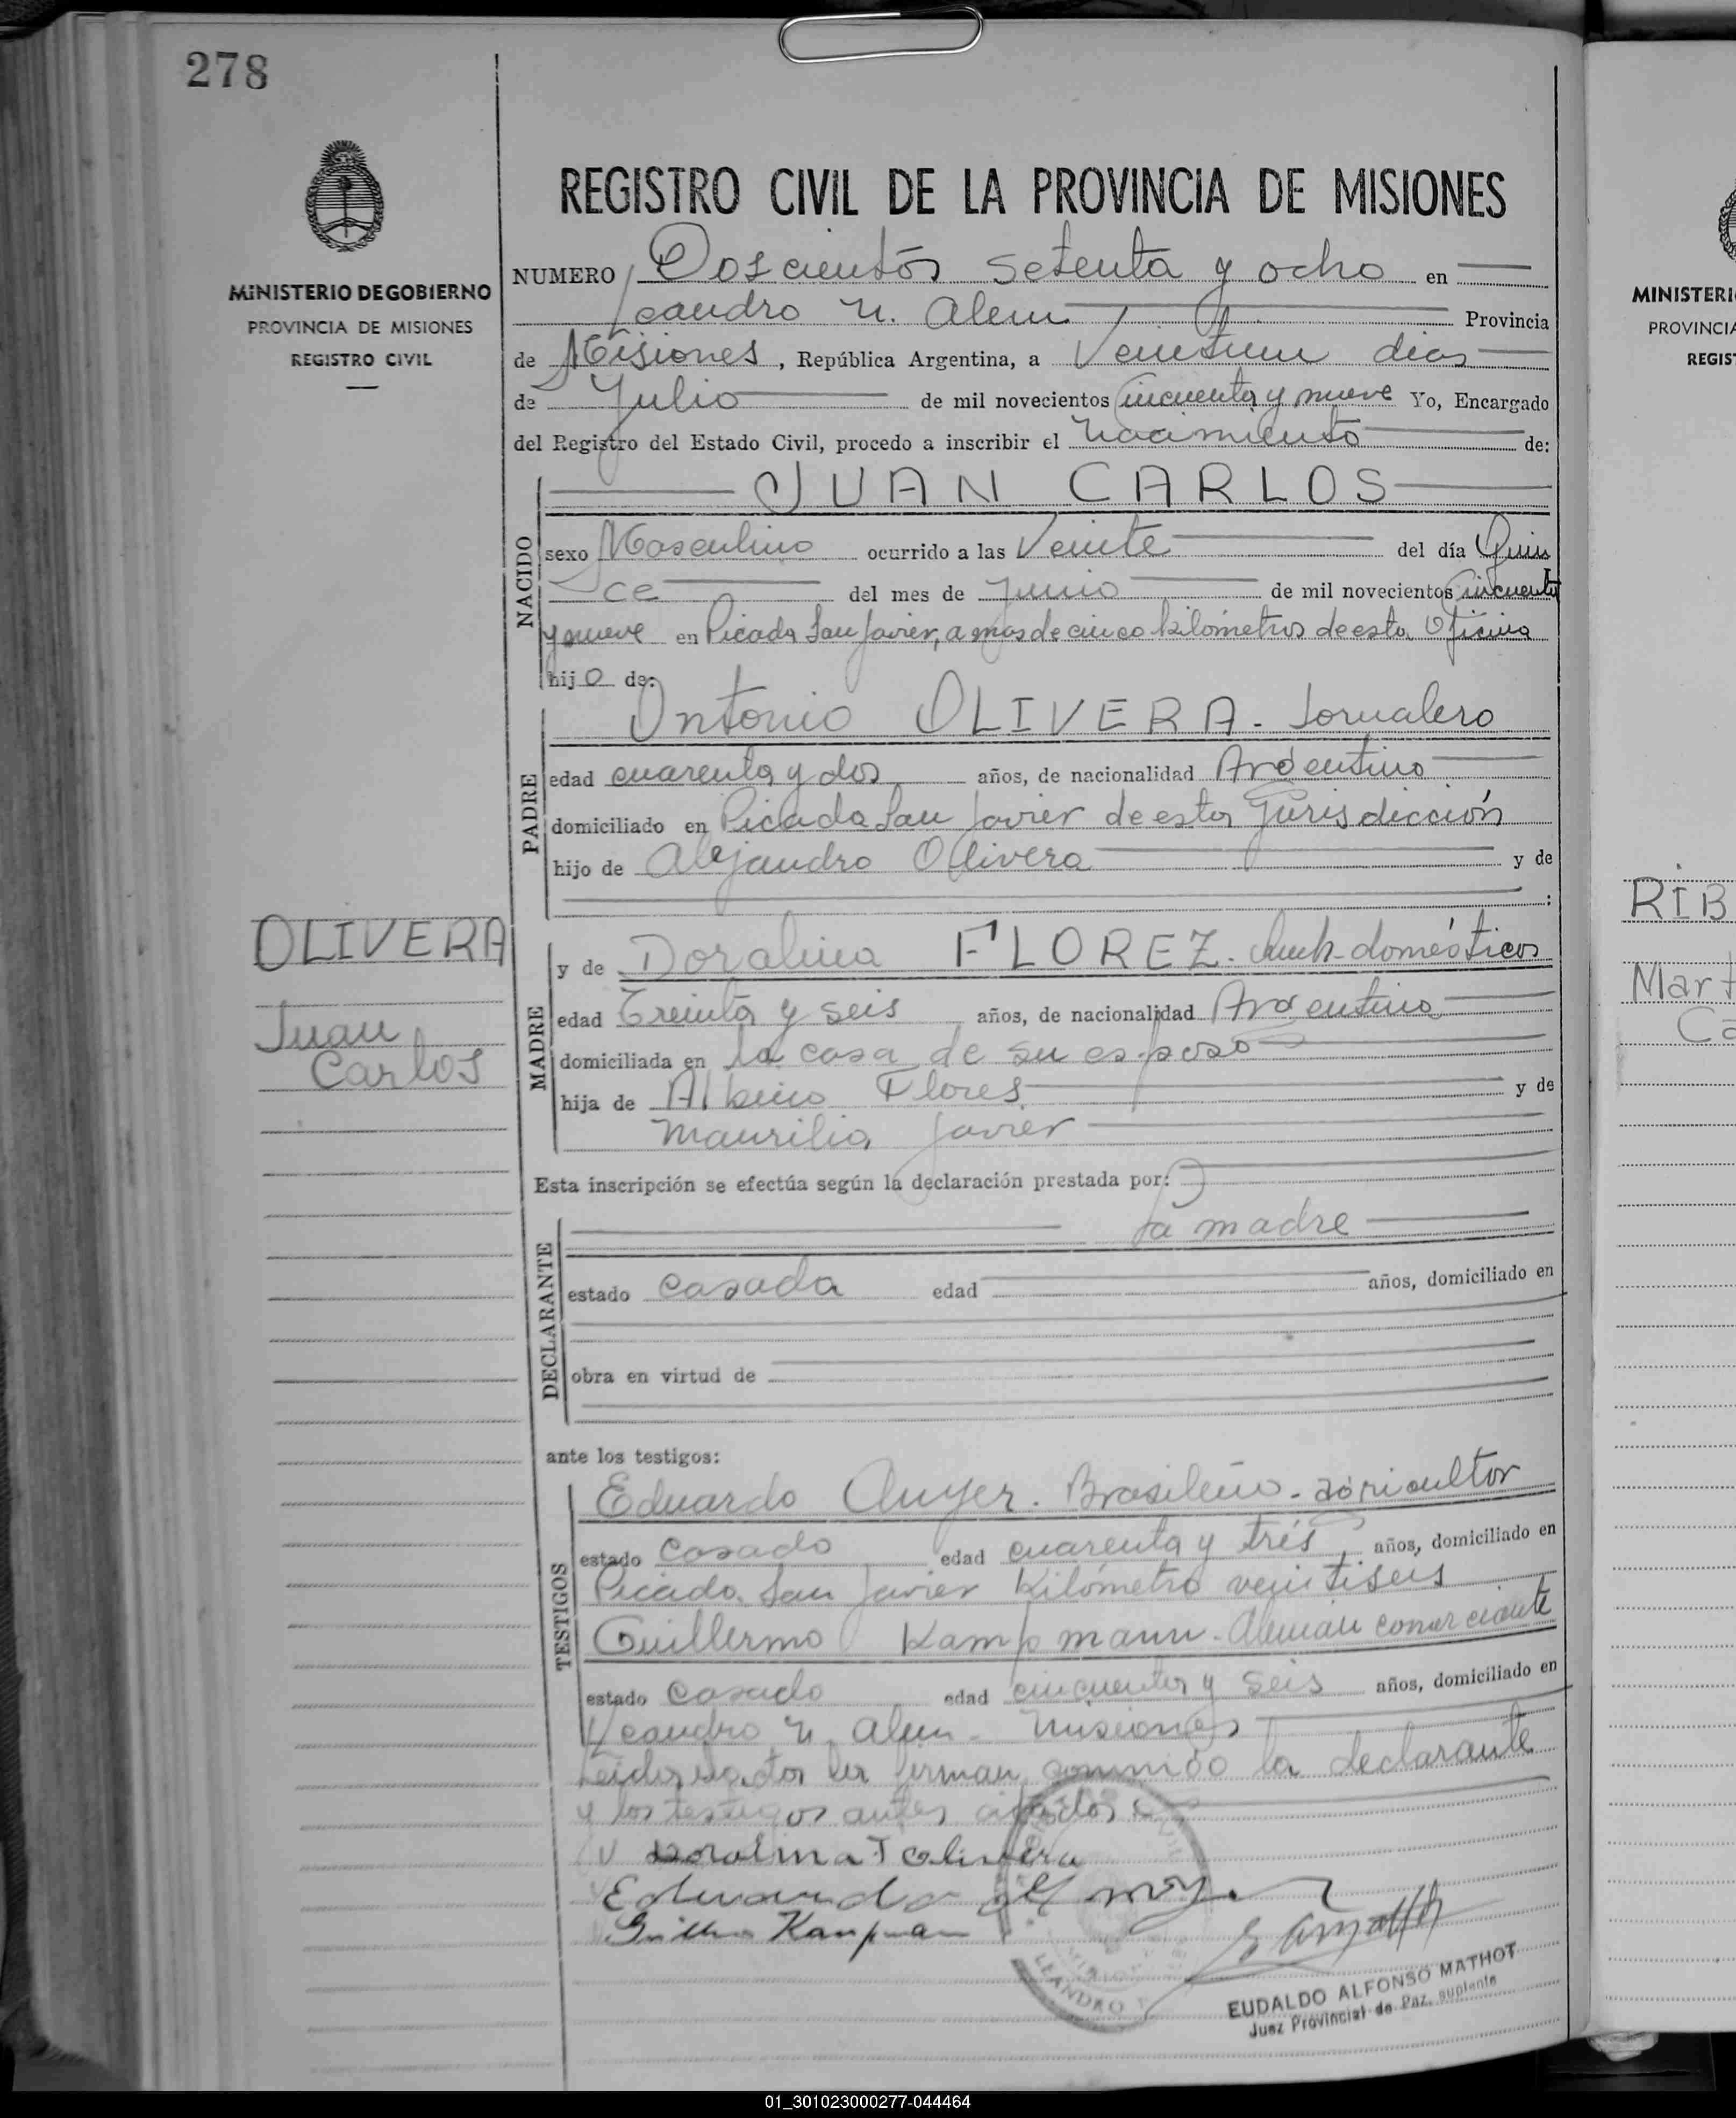 278
MINISTERIO DE GOBIERNO
PROVINCIA DE MISIONES
REGISTRO CIVIL
REGISTRO CIVIL DE LA PROVINCIA DE MISIONES
NUMERO Doscientos setenta y ocho en
Leandro N. Alem Provincia
de Misiones, República Argentina, a Veintiun dias
de Julio de mil novecientos cincuenta y nueve Yo, Encargado
del Registro del Estado Civil, procedo a inscribir el Nacimiento de:
JUAN CARLOS
NACIDO
sexo Masculino ocurrido a las Veinte del día Quin
ce del mes de Junio de mil novecientos cincuenta
y nueve en Picada San Javier, a mas de cinco kilómetros de esta Oficina
hijo de:
Antonio OLIVERA. Jornalero
PADRE
edad cuarenta y dos años, de nacionalidad Argentino
domiciliado en Picada San Javier de esta Jurisdicción
hijo de Alejandro Olivera y de
:
OLIVERA
Juan
Carlos
y de Doralina FLOREZ. domésticos
MADRE
edad Treinta y seis años, de nacionalidad Argentina
domiciliada en la casa de su esposo
hija de Albino Flores y de
Maurilia Javier
Esta inscripción se efectúa según la declaración prestada por:
la madre
DECLARANTE
estado casada edad años, domiciliado en
obra en virtud de
ante los testigos:
Eduardo Anyer. Brasileño. agricultor
TESTIGOS
estado casado edad cuarenta y trés, años, domiciliado en
Picada San Javier Kilómetro veintiseis
Guillermo Kampmann. Alemán comerciante
estado casado edad cincuenta y seis años, domiciliado en
Leandro N. Alem. Misiones
Leida el acta la firman conmigo la declarante
y los testigos antes citados
Doralina F Olivera
Eduardo
LEANDRO
EUDALDO ALFONSO MATHOT
Juez Provincial de Paz, suplente
MINISTERI
PROVINCIA
REGIS
RIB
Mart
Ca
01_301023000277-044464